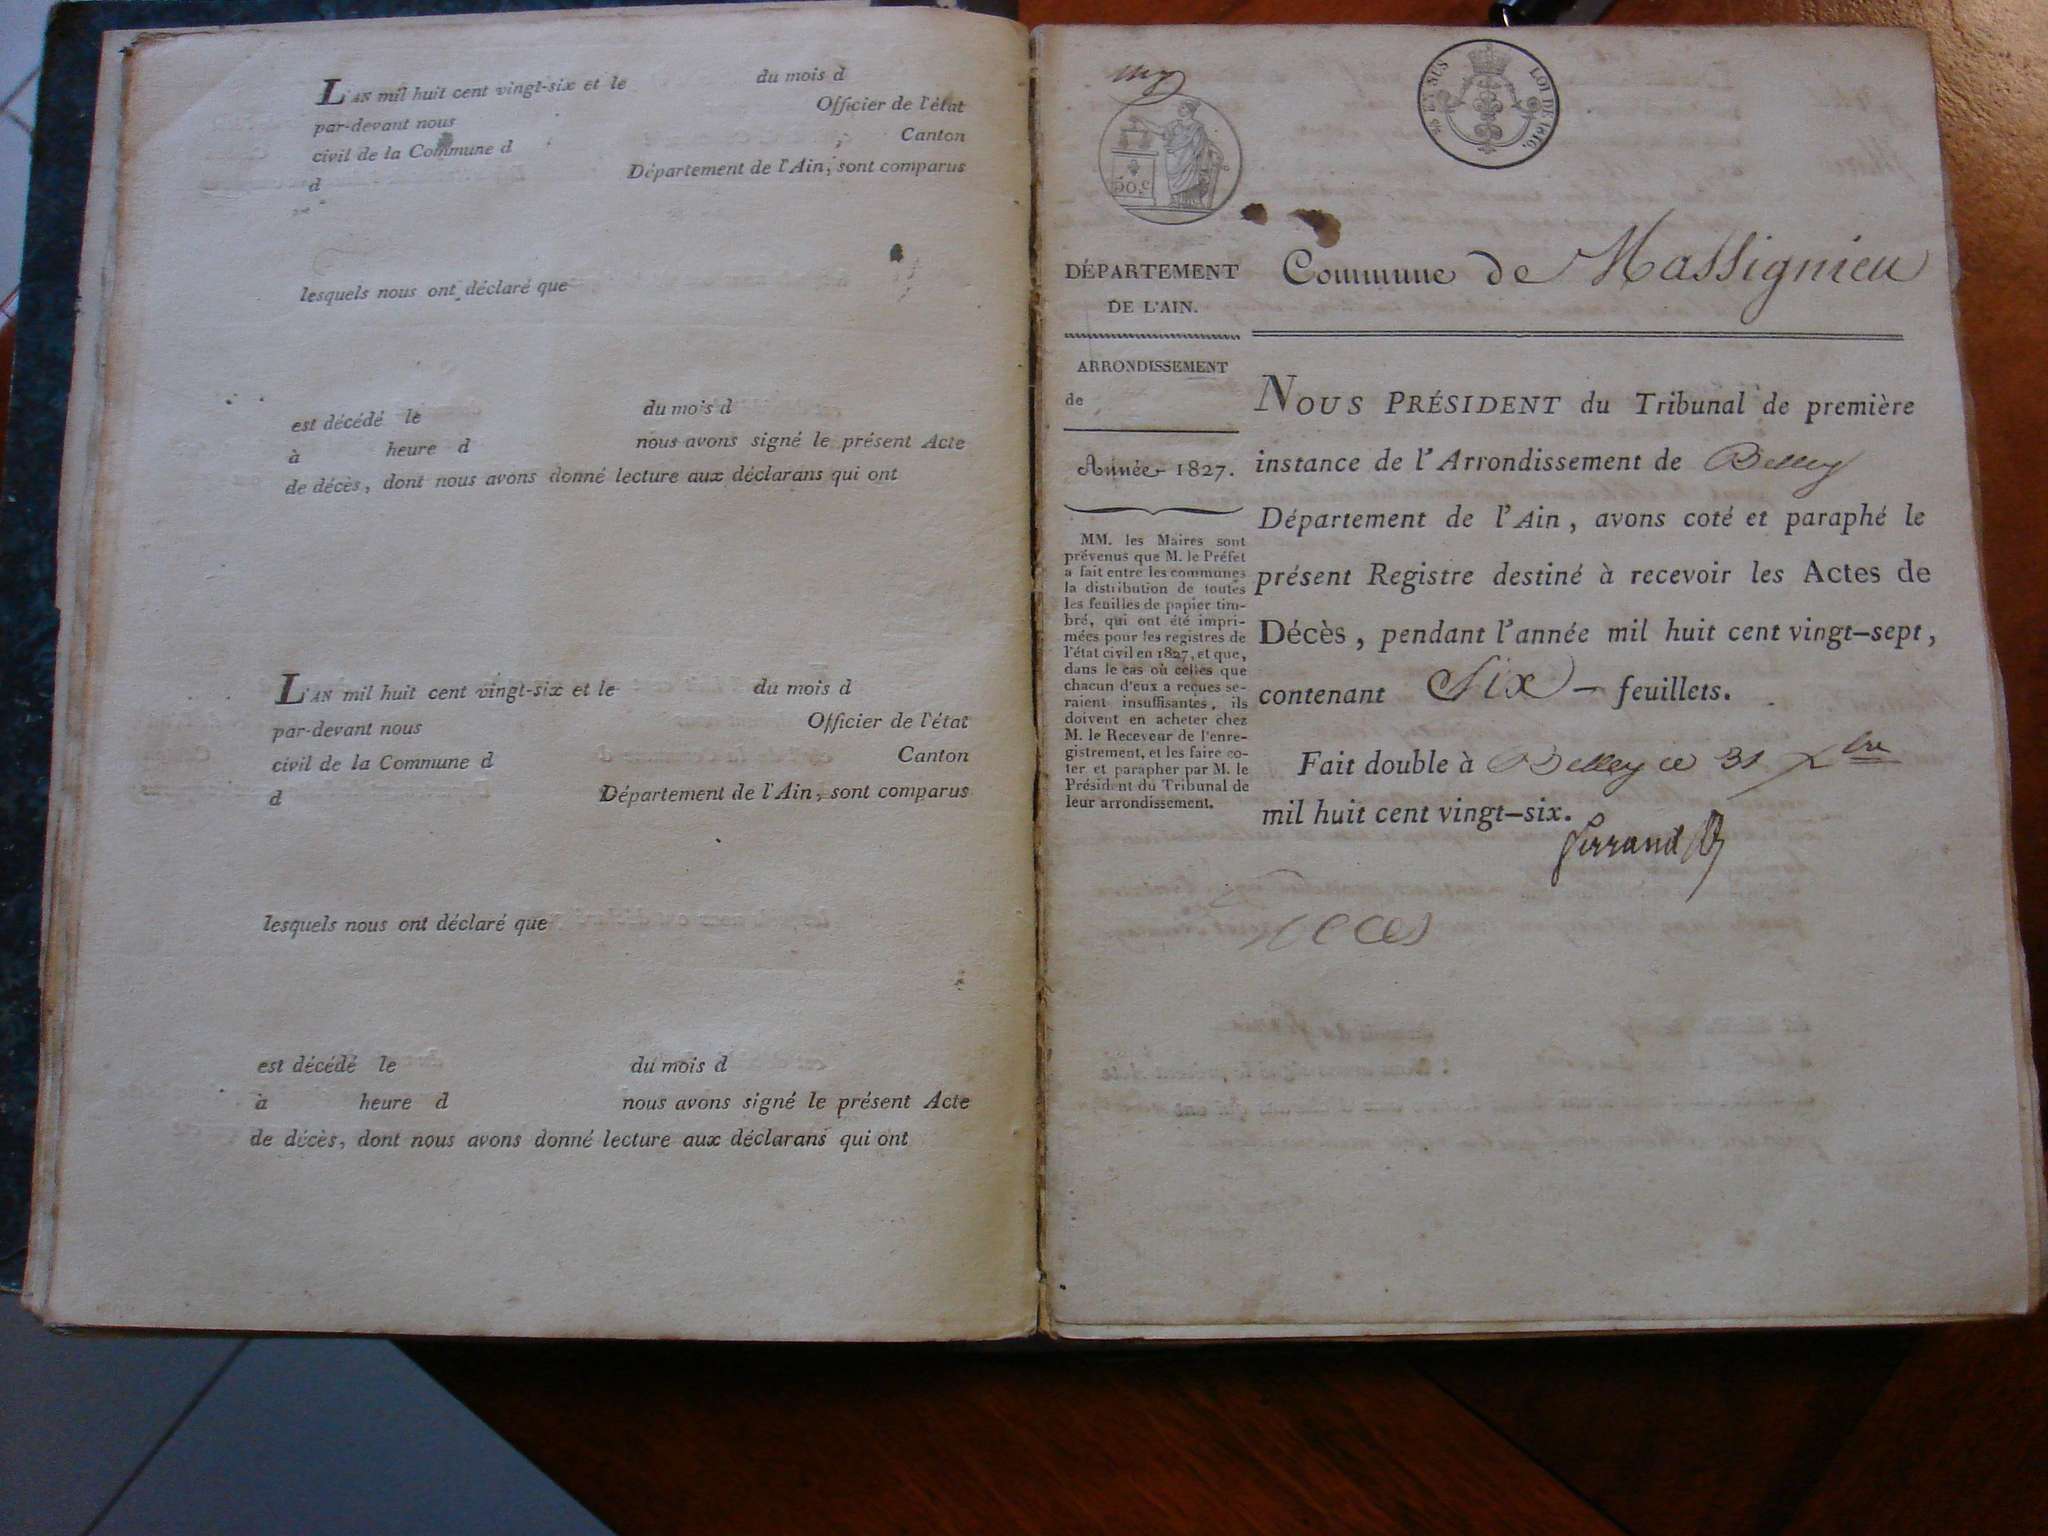 L'AN mil huit cent vingt-six et le du mois d
par-devant nous Officier de l'état
civil de la Commune d , Canton
d Département de l'Ain, sont comparus
lesquels nous ont déclaré que
est décédé le du mois d
à heure d nous avons signé le présent Acte
de décès, dont nous avons donné lecture aux déclarans qui ont
L'AN mil huit cent vingt-six et le du mois d
par-devant nous Officier de l'état
civil de la Commune d Canton
d Département de l'Ain, sont comparus
lesquels nous ont déclaré que
est décédé le du mois d
à heure d nous avons signé le présent Acte
de décès, dont nous avons donné lecture aux déclarans qui ont
EN SUS LOI DE 1816.
50 c
DÉPARTEMENT
DE L'AIN.
ARRONDISSEMENT
de
Année 1827.
MM. les Maires sont
prévenus que M. le Préfet
a fait entre les communes
la distribution de toutes
les feuilles de papier tim-
bré, qui ont été impri-
mées pour les registres de
l'état civil en 1827, et que,
dans le cas où celles que
chacun d'eux a reçues se-
raient insuffisantes, ils
doivent en acheter chez
M. le Receveur de l'enre-
gistrement, et les faire co-
ter et parapher par M. le
Président du Tribunal de
leur arrondissement.
Commune de Massignieu
NOUS PRÉSIDENT du Tribunal de première
instance de l'Arrondissement de Belley
Département de l'Ain, avons coté et paraphé le
présent Registre destiné à recevoir les Actes de
Décès, pendant l'année mil huit cent vingt-sept,
contenant Six - feuillets.
Fait double à Belley ce 31 Xbre
mil huit cent vingt-six.
Deces